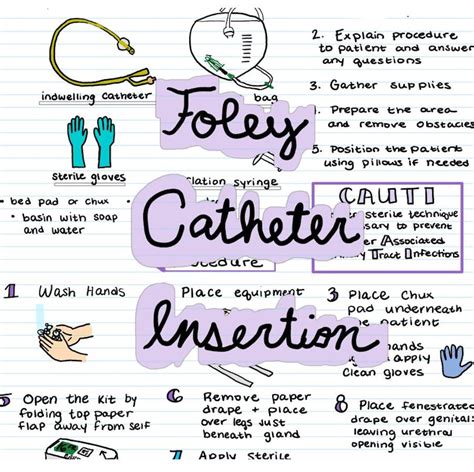 2. Explain procedure
to patient and answer
any questions
3. Gather supplies
4. Prepare the area
and remove obstacles
5. Position the patient
using pillows if needed
indwelling catheter
bag
Foley
Catheter
Insertion
sterile gloves
flation syringe
• bed pad or chux
• basin with soap
and water
CAUTI
sterile technique
necessary to prevent
Associated
Tract Infections
1 Wash Hands
Place equipment
3 Place Chux
pad underneath
patient
hands
apply
Clean gloves
5 Open the Kit by
folding top paper
flap away from self
6 Remove paper
drape + place
over legs just
beneath gland
7 Apply Sterile
8 Place fenestrated
drape over genitals
leaving urethral
opening visible